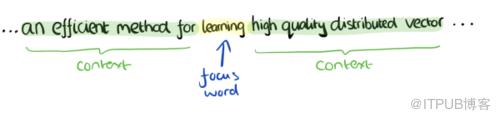 ...an efficient method for learning high quality distributed vector...
context
context
focus
word
@ITPUB博客